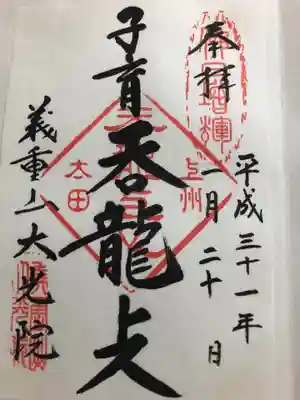 奉拝
平成三十一年
一月二十日
子育呑龍上人
上州
太田
義重山大光院